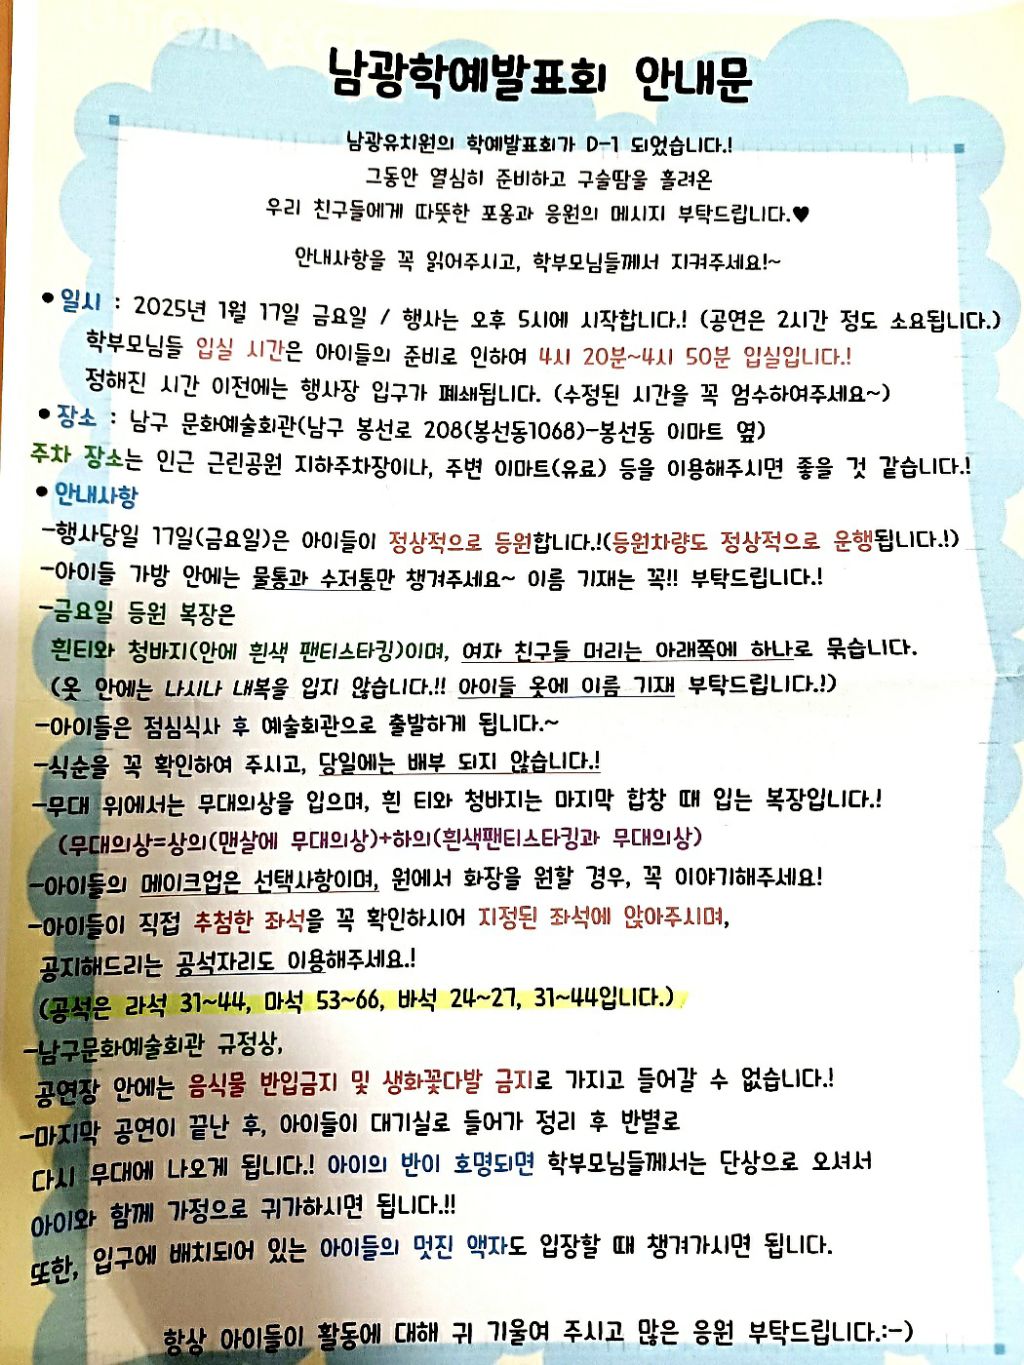 남광학예발표회 안내문
남광유치원의 학예발표회가 D-1 되었습니다.!
그동안 열심히 준비하고 구슬땀을 흘려온
우리 친구들에게 따뜻한 포옹과 응원의 메시지 부탁드립니다.♥
안내사항을 꼭 읽어주시고, 학부모님들께서 지켜주세요!~
● 일시 : 2025년 1월 17일 금요일 / 행사는 오후 5시에 시작합니다.! (공연은 2시간 정도 소요됩니다.)
학부모님들 입실 시간은 아이들의 준비로 인하여 4시 20분~4시 50분 입실입니다.!
정해진 시간 이전에는 행사장 입구가 폐쇄됩니다. (수정된 시간을 꼭 엄수하여주세요~)
● 장소 : 남구 문화예술회관(남구 봉선로 208(봉선동1068)-봉선동 이마트 옆)
주차 장소는 인근 근린공원 지하주차장이나, 주변 이마트(유료) 등을 이용해주시면 좋을 것 같습니다.!
● 안내사항
-행사당일 17일(금요일)은 아이들이 정상적으로 등원합니다.!(등원차량도 정상적으로 운행됩니다.!)
-아이들 가방 안에는 물통과 수저통만 챙겨주세요~ 이름 기재는 꼭!! 부탁드립니다.!
-금요일 등원 복장은
흰티와 청바지(안에 흰색 팬티스타킹)이며, 여자 친구들 머리는 아래쪽에 하나로 묶습니다.
(옷 안에는 나시나 내복을 입지 않습니다.!! 아이들 옷에 이름 기재 부탁드립니다.!)
-아이들은 점심식사 후 예술회관으로 출발하게 됩니다.~
-식순을 꼭 확인하여 주시고, 당일에는 배부 되지 않습니다.!
-무대 위에서는 무대의상을 입으며, 흰 티와 청바지는 마지막 합창 때 입는 복장입니다.!
(무대의상=상의(맨살에 무대의상)+하의(흰색팬티스타킹과 무대의상)
-아이들의 메이크업은 선택사항이며, 원에서 화장을 원할 경우, 꼭 이야기해주세요!
-아이들이 직접 추첨한 좌석을 꼭 확인하시어 지정된 좌석에 앉아주시며,
공지해드리는 공석자리도 이용해주세요.!
(공석은 라석 31~44, 마석 53~66, 바석 24~27, 31~44입니다.)
-남구문화예술회관 규정상,
공연장 안에는 음식물 반입금지 및 생화꽃다발 금지로 가지고 들어갈 수 없습니다.!
-마지막 공연이 끝난 후, 아이들이 대기실로 들어가 정리 후 반별로
다시 무대에 나오게 됩니다.! 아이의 반이 호명되면 학부모님들께서는 단상으로 오셔서
아이와 함께 가정으로 귀가하시면 됩니다.!!
또한, 입구에 배치되어 있는 아이들의 멋진 액자도 입장할 때 챙겨가시면 됩니다.
항상 아이들이 활동에 대해 귀 기울여 주시고 많은 응원 부탁드립니다.:-)